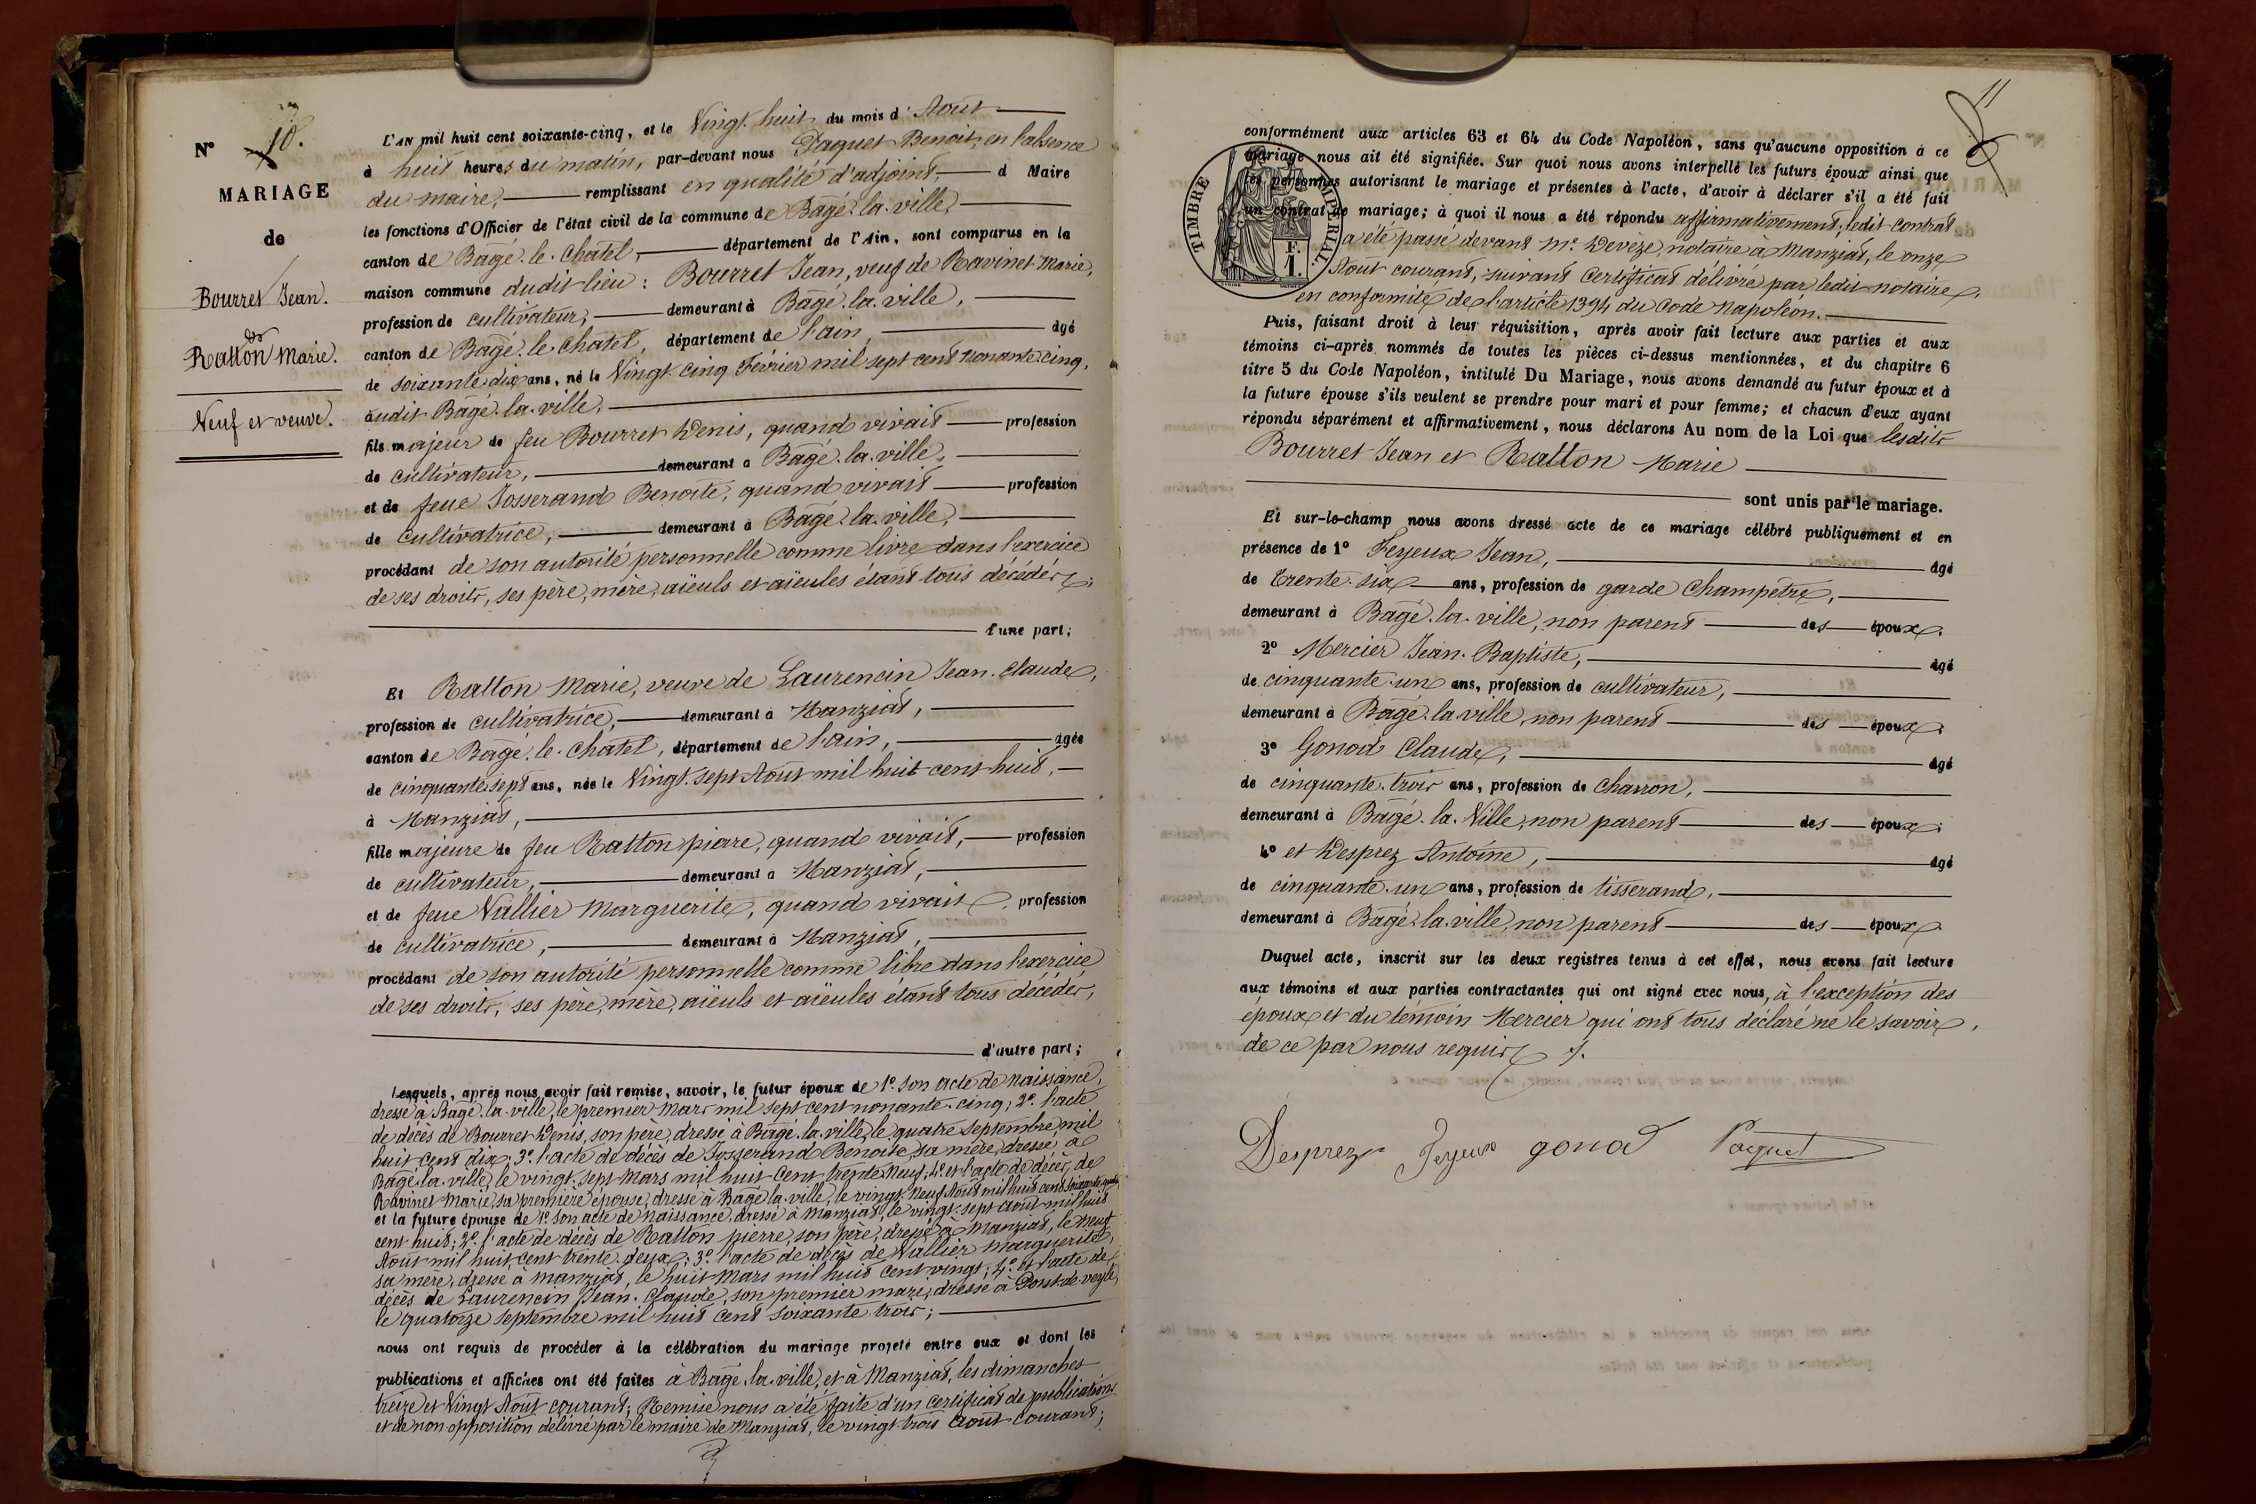 N° 10.
MARIAGE
de
Bourret Jean.
et
Ratton Marie.
Veuf et veuve.
L'AN mil huit cent soixante-cinq, et le Vingt huit du mois d'Août
à huit heures du matin, par-devant nous Paquet Benoit, en l'absence
du maire, remplissant en qualité d'adjoint, d Maire
les fonctions d'Officier de l'état civil de la commune de Bâgé-la-ville,
canton de Bâgé-le-Chatel, département de l'Ain, sont comparus en la
maison commune dudit lieu : Bourret Jean, veuf de Ravinet Marie,
profession de cultivateur, demeurant à Bâgé-la-ville,
canton de Bâgé-le-chatel, département de l'ain, âgé
de soixante dix ans, né le Vingt-cinq Février mil sept cent nonante cinq,
audit Bâgé-la-ville,
fils majeur de feu Bourret Denis, quand vivait profession
de cultivateur, demeurant à Bâgé-la-ville,
et de feue Josserand Benoite, quand vivait profession
de cultivatrice, demeurant à Bâgé-la-ville,
procédant de son autorité personnelle comme livre dans l'exercice
de ses droits, ses père, mère, aïeuls et aïeules étant tous décédés,
d'une part;
Et Ratton Marie, veuve de Laurencin Jean-Claude,
profession de cultivatrice, demeurant à Manziat,
canton de Bâgé-le-chatel, département de l'ain, âgée
de cinquante sept ans, née le Vingt-sept Août mil huit cent huit,
à Manziat,
fille majeure de feu Ratton piorre, quand vivait, profession
de cultivateur, demeurant à Manziat,
et de feue Vallier Marguerite, quand vivait profession
de cultivatrice, demeurant à Manziat,
procédant de son autorité personnelle comme libre dans l'exercice
de ses droits, ses père, mère, aïeuls et aïeules étant tous décédés,
d'autre part;
Lesquels, après nous avoir fait remise, savoir, le futur époux de 1° son acte de naissance,
dressé à Bâgé-la-ville, le premier Mars mil sept cent nonante-cinq; 2° l'acte
de décès de Bourret Denis, son père, dressé à Bâgé-la-ville, le quatre Septembre mil
huit cent dix; 3° l'acte de décès de Josserand Benoite, sa mère, dressé à
Bâgé-la-ville, le vingt-sept Mars mil huit cent trente neuf; 4° et l'acte de décès, de
Ravinet Marie, sa première épouse, dressé à Bâgé la ville, le vingt-neuf Août mil huit cent soixante quatre
et la future épouse de 1° son acte de naissance, dressé à Manziat, le vingt-sept août mil huit
cent huit; 2° l'acte de décès de Ratton pierre, son père, dressé à Manziat, le neuf
Août mil huit cent trente-deux; 3° l'acte de décès de Vallier Marguerite,
sa mère, dressé à Manziat, le huit Mars mil huit cent vingt; 4° et l'acte de
décès de Laurencin Jean-Claude, son premier mari, dressé à Pont-de-veyle,
le quatorze septembre mil huit cent soixante trois;
nous ont requis de procéder à la célébration du mariage projeté entre eux et dont les
publications et affiches ont été faites à Bâgé-la-ville, et à Manziat, les dimanches
treize et Vingt Août courant; Remise nous a été faite d'un certificat de publications
et de non opposition délivré par le maire de Manziat, le vingt-trois août courant;
11
conformément aux articles 63 et 64 du Code Napoléon, sans qu'aucune opposition à ce
mariage nous ait été signifiée. Sur quoi nous avons interpellé les futurs époux ainsi que
les personnes autorisant le mariage et présentes à l'acte, d'avoir à déclarer s'il a été fait
un contrat de mariage; à quoi il nous a été répondu affirmativement; ledit contrat
a été passé devant Me Devèze, notaire à Manziat, le onze
Août courant, suivant Certificat délivré par ledit notaire,
en conformité de l'article 1394 du Code Napoléon.
TIMBRE IMPÉRIAL.
F.
1.
Puis, faisant droit à leur réquisition, après avoir fait lecture aux parties et aux
témoins ci-après nommés de toutes les pièces ci-dessus mentionnées, et du chapitre 6
titre 5 du Code Napoléon, intitulé Du Mariage, nous avons demandé au futur époux et à
la future épouse s'ils veulent se prendre pour mari et pour femme; et chacun d'eux ayant
répondu séparément et affirmativement, nous déclarons Au nom de la Loi que lesdits
Bourret Jean et Ratton Marie
sont unis par le mariage.
Et sur-le-champ nous avons dressé acte de ce mariage célébré publiquement et en
présence de 1° Feyeux Jean, âgé
de trente-six ans, profession de garde Champêtre,
demeurant à Bâgé-la-ville, non parent des époux.
2° Mercier Jean-Baptiste, âgé
de cinquante-un ans, profession de cultivateur,
demeurant à Bâgé-la-ville, non parent des époux.
3° Gonod Claude, âgé
de cinquante-trois ans, profession de charron,
demeurant à Bâgé-la-Ville, non parent des époux.
4° et Desprez Antoine, âgé
de cinquante-un ans, profession de tisserand,
demeurant à Bâgé-la-ville, non parent des époux.
Duquel acte, inscrit sur les deux registres tenus à cet effet, nous avons fait lecture
aux témoins et aux parties contractantes qui ont signé avec nous, à l'exception des
époux et du témoin Mercier qui ont tous déclaré ne le savoir,
de ce par nous requis.
Desprez Feyeux gonod Paquet